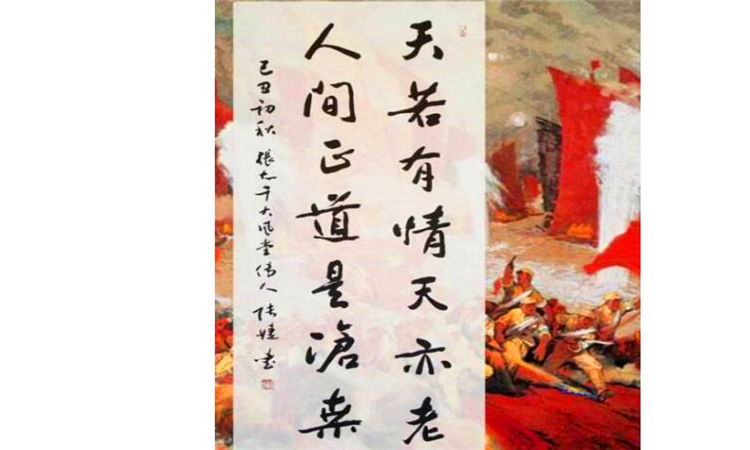 天若有情天亦老
人间正道是沧桑
己丑初秋 张大千大风堂传人 陆婕书